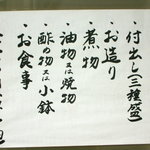 ・付出し(三種盛)
・お造り
・煮物
・油物又は焼物
・酢の物又は小鉢
・お食事